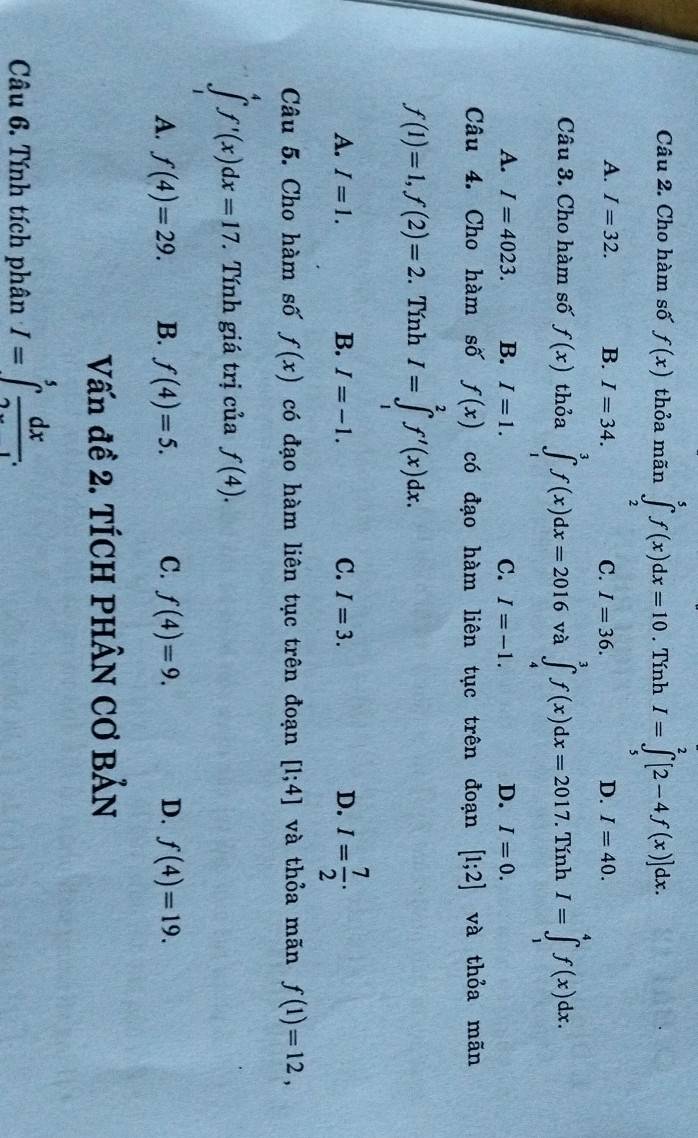 Câu 2. Cho hàm số f(x) thỏa mãn ∫₂⁵ f(x)dx = 10. Tính I = ∫₅² [2 − 4f(x)]dx.
A. I = 32. B. I = 34. C. I = 36. D. I = 40.
Câu 3. Cho hàm số f(x) thỏa ∫₁³ f(x)dx = 2016 và ∫₄³ f(x)dx = 2017. Tính I = ∫₁⁴ f(x)dx.
A. I = 4023. B. I = 1. C. I = −1. D. I = 0.
Câu 4. Cho hàm số f(x) có đạo hàm liên tục trên đoạn [1;2] và thỏa mãn
f(1) = 1, f(2) = 2. Tính I = ∫₁² f'(x)dx.
A. I = 1. B. I = −1. C. I = 3. D. I = 7/2.
Câu 5. Cho hàm số f(x) có đạo hàm liên tục trên đoạn [1;4] và thỏa mãn f(1) = 12,
∫₁⁴ f'(x)dx = 17. Tính giá trị của f(4).
A. f(4) = 29. B. f(4) = 5. C. f(4) = 9. D. f(4) = 19.
Vấn đề 2. TÍCH PHÂN CƠ BẢN
Câu 6. Tính tích phân I = ∫⁵ dx